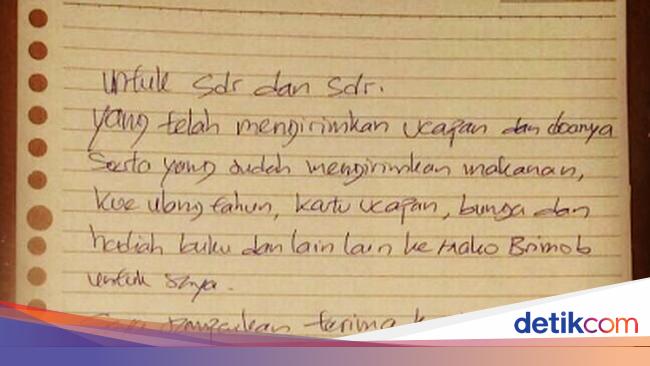 untuk sdr dan sdr.
yang telah mengirimkan ucapan dan doanya
Serta yang sudah mengirimkan makanan,
kue ulang tahun, kartu ucapan, bunga dan
hadiah buku dan lain lain ke Mako Brimob
untuk saya.
Saya sampaikan terima
detikcom